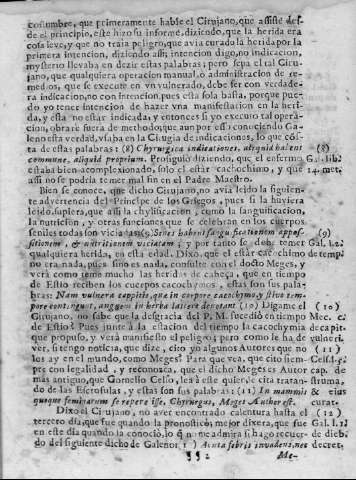 costumbre, que primeramente hable el Cirujano, que assiste des-
de el principio, este hizo su informe, diziendo, que la herida era
cosa leve, y que no traìa peligro, que avia curado la herida por la
primera intencion, diziendo assi; intencion digo, no indicacion,
mysterio llevaba en dezir estas palabras; pero sepa el tal Ciru-
jano, que qualquiera operacion manual, ò administracion de re-
medios, que se execute en vn vulnerado, debe ser con verdade-
ra indicacion, no con intencion, pues esta sola basta, porque pue-
do yo tener intencion de hazer vna manifestacion en la heri-
da, y esta no estar indicada; y entonces si yo executo tal opera-
cion, obrarè fuera de methodo; que aun por esso conociendo Ga-
leno esta verdad, vsaba en la Cirugia de indicaciones, lo que cons-
ta de estas palabras: (8) Chyrurgica indicationes, aliquid habent
commune, aliquid proprium. Prosiguiò diziendo, que el enfermo
estaba bien acomplexionado, solo el estár cacochimo, y que
assi no se podia temer mal fin en el Padre Maestro.
Bien se conoce, que dicho Cirujano, no avia leido la siguien-
te advertencia del Principe de los Griegos, pues si la huviera
leido, supiera, que assi la chylificacion, como la sanguificacion,
la nutricion, y otras funciones que se celebran en los cuerpos
seniles todas son viciadas: (9) Senes habent sanguificationem oppos-
sitionem, & nutritionem vitiatam; y por tanto se debe temer
qualquiera herida, en esta edad. Dixo, que el estár cacochimo
no era nada, pues sino es nada, consulte con el docto Meges, y
verà como teme mucho las heridas de cabeça, que en tiempo
de Estio reciben los cuerpos cacochymos, estas son sus pala-
bras: Nam vulnera capitis, quæ in corpore cacochymo, & æstivo tem-
pore contingunt, augent in herba letiore denotant (10) Digame el
Cirujano, no sabe que la desgracia del P. M. sucediò en tiempo
de Estio? Pues junte à la estacion del tiempo la cacochymia
que propuso, y verà manifiesto el peligro; pero como le ha de
ver, si tengo noticia, que dize, cito yo algunos Autores que no
los ay en el mundo, como Meges? Para que vea, que cito siem-
pre con legalidad, y reconozca, que el dicho Meges es Autor
mas antiguo, que Cornelio Celso, lea à este quien le cita tratan-
do de las Escrofulas, y estas son sus palabras: (11) In mammis
quoque feminarum se repere isse, Chyrurgus, Meges Auther est.
Dixo el Cirujano, no aver encontrado calentura hasta el
tercero dia, que fue quando la pronosticò; mejor dixera, que fue
en este dia quando la conociò, lo que no me admira si hago recuer-
do del siguiente dicho de Galeno: Acuta febris invadens, nec
¶¶2 Me-
(8)
Gal. lib.
14. met.
(9)
Gal. l. 2.
de temp.
(10)
Mec. c.
de capit.
vulnera.
(11)
Cels. l. 5.
cap. de
struma,
& eius
curat.
(12)
Gal. l. 1.
de dieb.
decret.